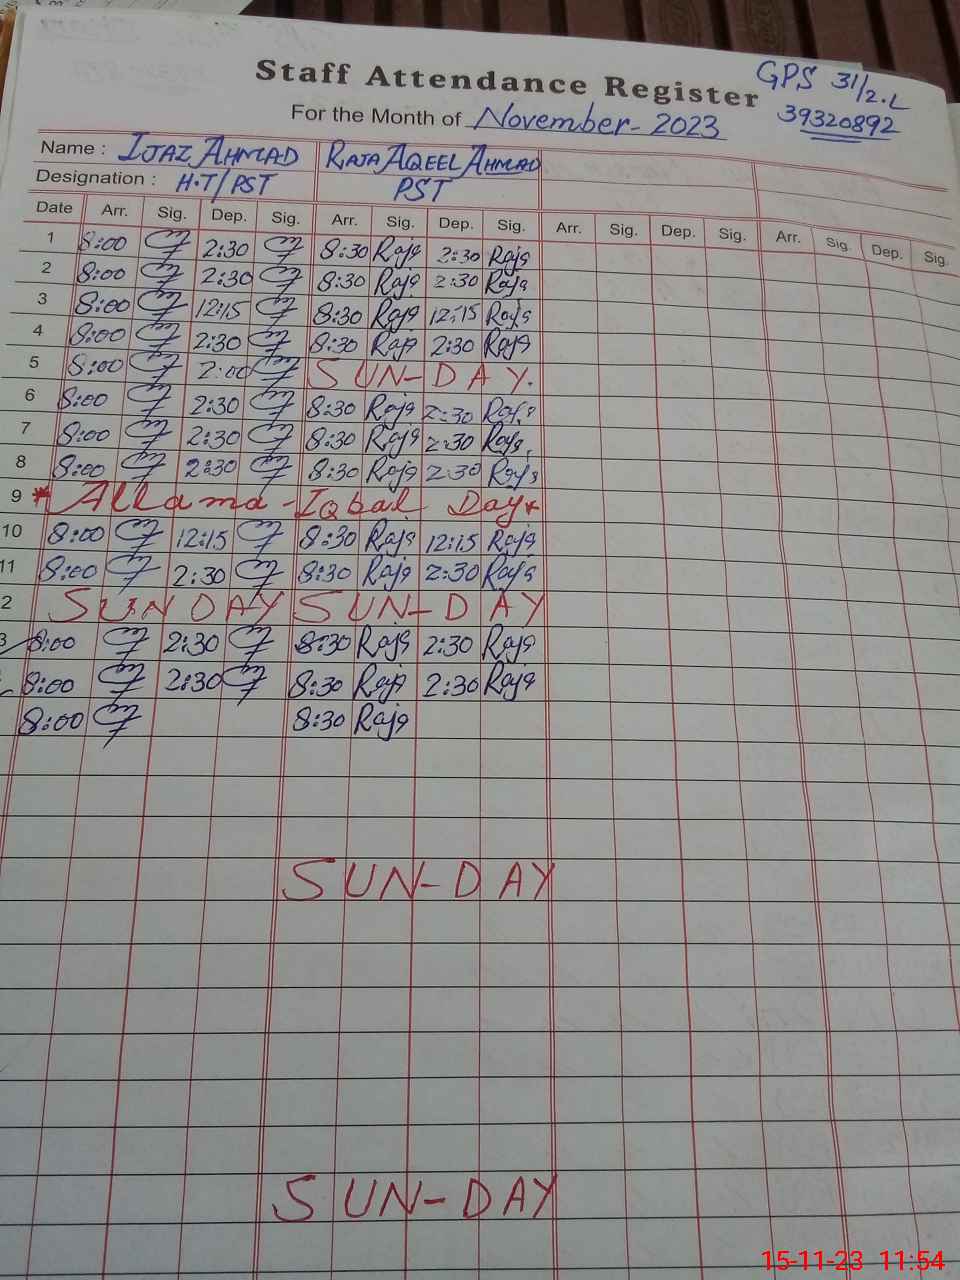 Staff Attendance Register
GPS 31/2.L
For the Month of November - 2023
39320892
Name : IJAZ AHMAD RAJA AQEEL AHMAD
Designation : H.T/PST PST
Date Arr. Sig. Dep. Sig. Arr. Sig. Dep. Sig. Arr. Sig. Dep. Sig. Arr. Sig. Dep. Sig.
1 8:00 2:30 8:30 Raja 2:30 Raja
2 8:00 2:30 8:30 Raja 2:30 Raja
3 8:00 12:15 8:30 Raja 12:15 Raja
4 8:00 2:30 8:30 Raja 2:30 Raja
5 8:00 2:00 SUN-DAY.
6 8:00 2:30 8:30 Raja 2:30 Raja
7 8:00 2:30 8:30 Raja 2:30 Raja
8 8:00 2:30 8:30 Raja 2:30 Raja
9 * Allama - Iqbal Day *
10 8:00 12:15 8:30 Raja 12:15 Raja
11 8:00 2:30 8:30 Raja 2:30 Raja
2 SUNDAY SUN-DAY
3 8:00 2:30 8:30 Raja 2:30 Raja
8:00 2:30 8:30 Raja 2:30 Raja
8:00 8:30 Raja
SUN-DAY
SUN-DAY
15-11-23 11:54